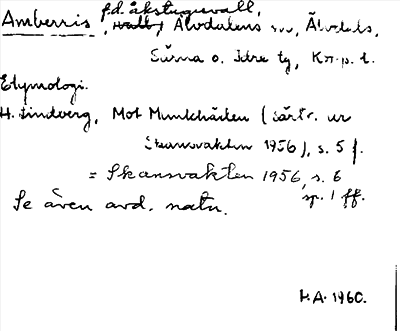 Amberris f.d. åkstugevall,
, Älvdalens sn, Älvdals,
Särna o. Idre tg, Kopp. l.
Etymologi.
H. Lindberg, Mot Munkhärden (särtr. ur
Skansvakten 1956), s. 5 f.
= Skansvakten 1956, s. 6
sp. 1 ff.
Se även avd. natn.
H.A. 1960.